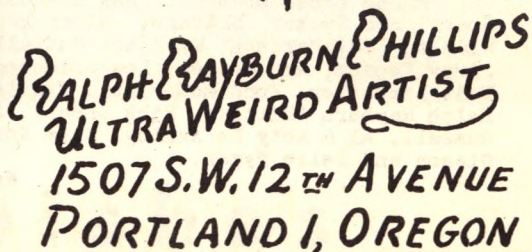 RALPH RAYBURN PHILLIPS
ULTRA WEIRD ARTIST
1507 S.W. 12TH AVENUE
PORTLAND 1, OREGON